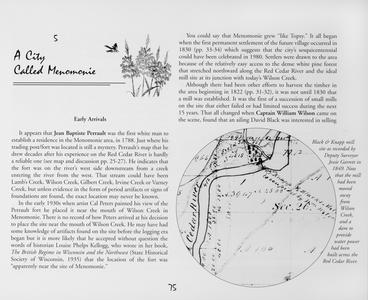 5
A City
Called Menomonie
Early Arrivals
It appears that Jean Baptiste Perrault was the first white man to
establish a residence in the Menomonie area, in 1788. Just where his
trading post/fort was located is still a mystery. Perrault's map that he
drew decades after his experience on the Red Cedar River is hardly
a reliable one (see map and discussion pp. 25-27). He indicates that
the fort was on the river's west side downstream from a creek
entering the river from the west. That stream could have been
Lamb's Creek, Wilson Creek, Gilbert Creek, Irvine Creek or Varney
Creek, but unless evidence in the form of period artifacts or signs of
foundations are found, the exact location may never be known.
In the early 1930s when artist Cal Peters painted his view of the
Perrault fort he placed it near the mouth of Wilson Creek in
Menomonie. There is no record of how Peters arrived at his decision
to place the site near the mouth of Wilson Creek. He may have had
some knowledge of artifacts found on the site before the logging era
began but it is more likely that he accepted without question the
words of historian Louise Phelps Kellogg, who wrote in her book,
The British Regime in Wisconsin and the Northwest (State Historical
Society of Wisconsin, 1935) that the location of the fort was
"apparently near the site of Menomonie."
You could say that Menomonie grew "like Topsy." It all began
when the first permanent settlement of the future village occurred in
1830 (pp. 33-34) which suggests that the city's sesquicentennial
could have been celebrated in 1980. Settlers were drawn to the area
because of the relatively easy access to the dense white pine forest
that stretched northward along the Red Cedar River and the ideal
mill site at its junction with today's Wilson Creek.
Although there had been other efforts to harvest the timber in
the area beginning in 1822 (pp. 31-32), it was not until 1830 that
a mill was established. It was the first of a succession of small mills
on the site that either failed or had limited success during the next
15 years. That all changed when Captain William Wilson came on
the scene, found that an ailing David Black was interested in selling
Black & Knapp mill
site as recorded by
Deputy Surveyor
Josie Garrett in
1849. Note
that the mill
had been
moved
away
from
Wilson
Creek,
and a
dam to
provide
water power
had been
built across the
Red Cedar River
75